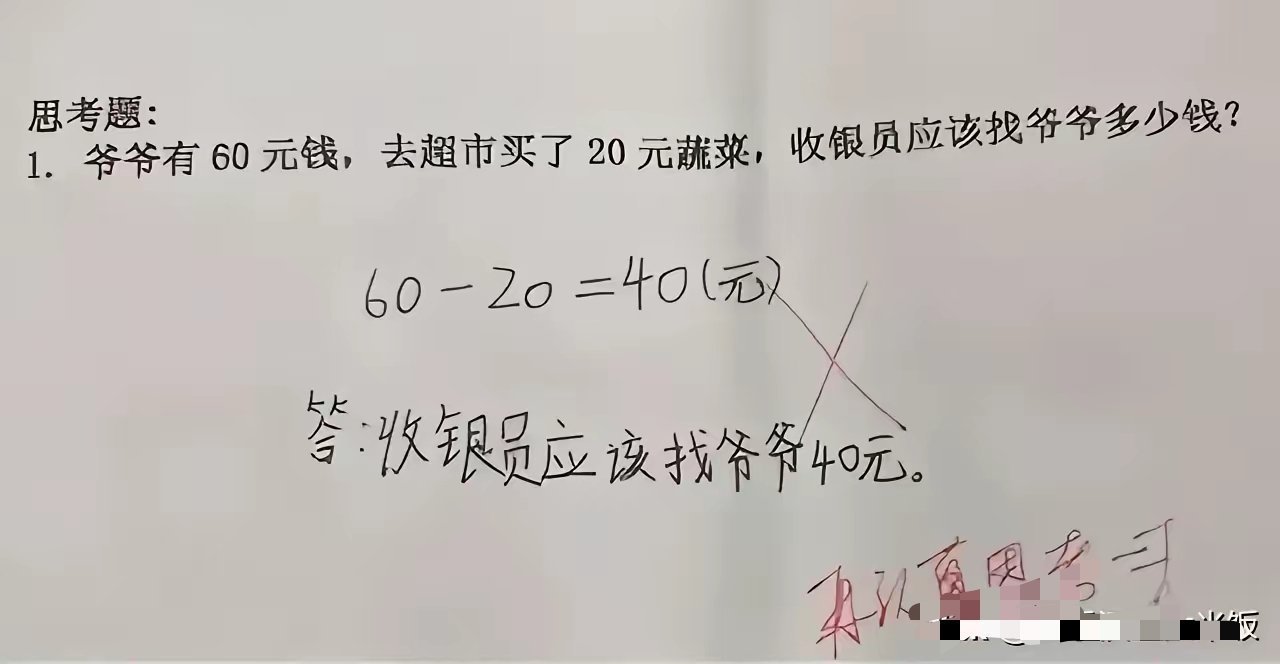 思考题：
1. 爷爷有 60 元钱，去超市买了 20 元蔬菜，收银员应该找爷爷多少钱？
60-20=40(元)
答:收银员应该找爷爷40元。
再认真思考
米饭